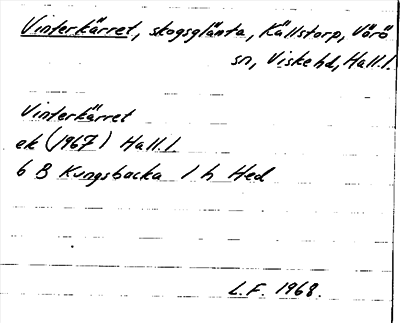 Vinterkärret, skogsglänta, Källstorp, Värö
sn, Viske hd, Hall.l.
Vinterkärret
ek (1967) Hall.l.
6 B Kungsbacka 1 h Hed
L.F. 1968.